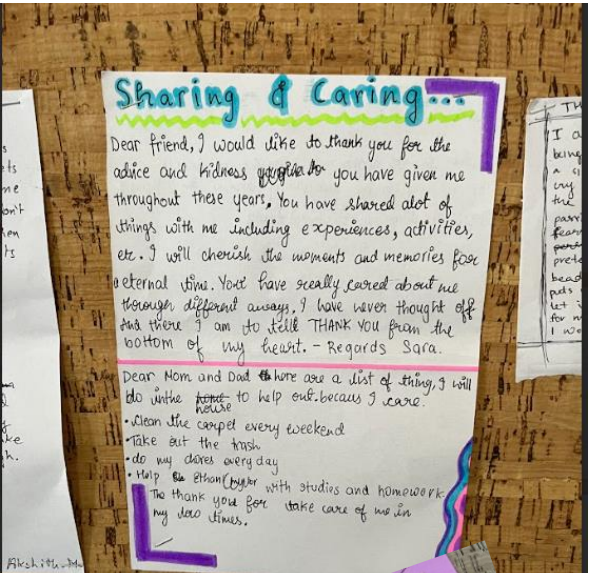 Sharing & Caring...
Dear friend, I would like to thank you for the
advice and kidness you have given me
throughout these years. You have shared alot of
things with me including experiences, activities,
etc. I will cherish the moments and memories for
eternal time. You have really cared about me
thorough different aways. I have never thought off
And there I am to tell THANK YOU from the
bottom of my heart. - Regards Sara.
Dear Mom and Dad here are a list of thing, I will
do in the home to help out. becaus I care.
house
• Clean the carpet every weekend
• Take out the trash
• do my chores every day
• Help Ethan with studies and homework.
To thank you for take care of me in
my low times.
s
ets
me
on't
hen
ts
ke
h.
Akshith
TH
I a
being
a
cry
the
fear
prete
bead
puts
let
for m
I wo